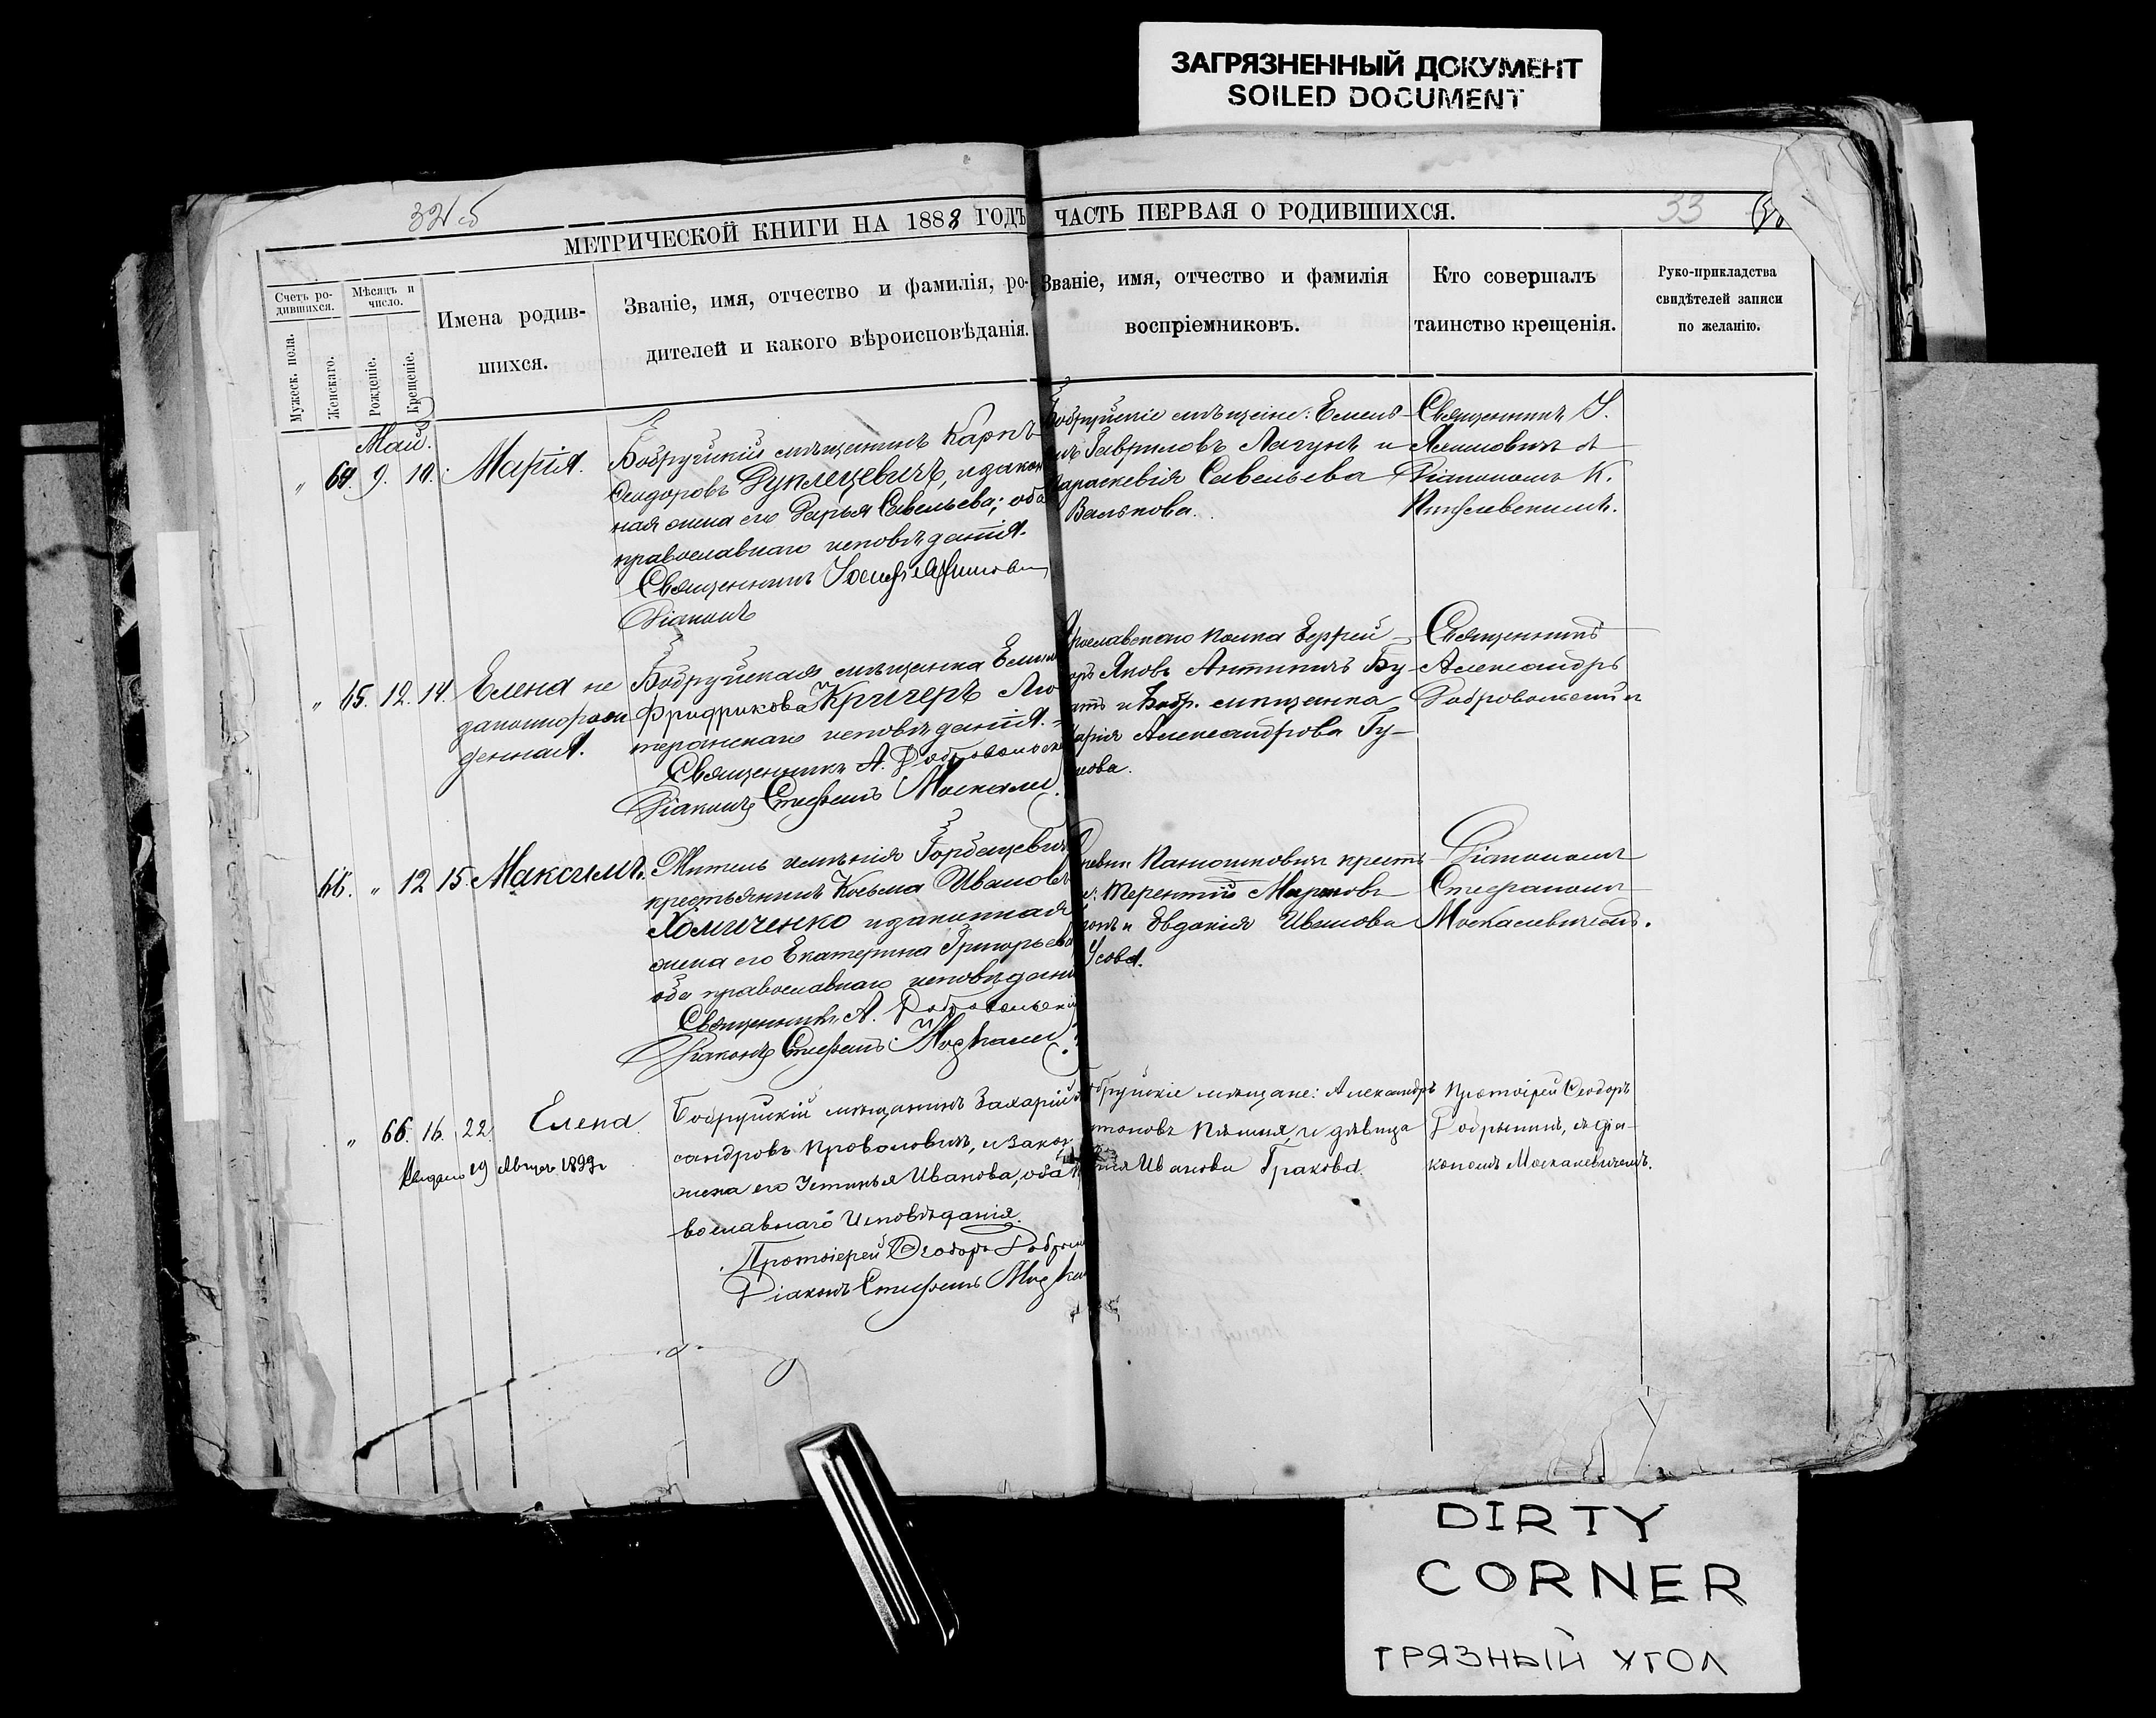 ЗАГРЯЗНЕННЫЙ ДОКУМЕНТ
SOILED DOCUMENT
33
МЕТРИЧЕСКОЙ КНИГИ НА 1888 ГОДЪ ЧАСТЬ ПЕРВАЯ О РОДИВШИХСЯ.
Счетъ ро-
дившихся.
Мужеск. пола.
Женскаго.
Мѣсяцъ и
число.
Рожденіе.
Крещеніе.
Имена родив-
шихся.
Званіе, имя, отчество и фамилія, ро-
дителей и какого вѣроисповѣданія.
Званіе, имя, отчество и фамилія
воспріемниковъ.
Кто совершалъ
таинство крещенія.
Руко-прикладства
свидѣтелей записи
по желанію.
Май.
" 64. 9. 10. Марія.
Бобруйскій мѣщанинъ Карпъ
Ѳеодоровъ Дуплецевичъ, и закон
ная жена его Дарья Савельева; оба
православнаго исповѣданія.
Священникъ Іосифъ
Діаконъ
Бобруйскіе мѣщане: Емель
Гавриловъ Лагунъ и
Параскевія Савельева
Валькова.
Священникъ І.
Якимовичъ съ
Діакономъ К.
" 65. 12. 14. Елена не
законнорож
денная.
Бобруйская мѣщанка
Фридрикова Кригеръ Лю
теранскаго исповѣданія.
Священникъ А. Добровольск
Діаконъ Стефанъ Москале
рославскаго полка Ефрей
оръ Яковъ Антипичъ Бу-
атъ и Бобр. мѣщанка
арія Александрова Гу-
кова.
Священникъ
Александръ
Добровольскій
66. " 12 15. Максимъ.
Житель имѣнія Горбацевичъ
крестьянинъ Козьма Ивановъ
Хомиченко и законная
жена его Екатерина Григорьева
оба православнаго исповѣдані
Священникъ А. Добровольскій
Діаконъ Стефанъ Москале
ревни Панюшковичъ крестъ
е: Терентій Марковъ
и Евдокія Иванова
Усова.
Діаконом
Стефаномъ
Москалевичемъ.
" 66. 16. 22. Елена
Выдано 19 1899 г
Бобруйскій мѣщанинъ Захарій
сандровъ Проволовичъ, и закон
жена его Устинья Иванова, оба п
вославнаго Исповѣданія.
Протоіерей Ѳеодоръ Добрын
Діаконъ Стефанъ Моска
обруйскіе мѣщане: Александръ
и дѣвица
Иванова Гракова.
Протоіерей Ѳеодоръ
Добрынинъ, съ діа-
кономъ Москалевичемъ.
DIRTY
CORNER
ГРЯЗНЫЙ УГОЛ